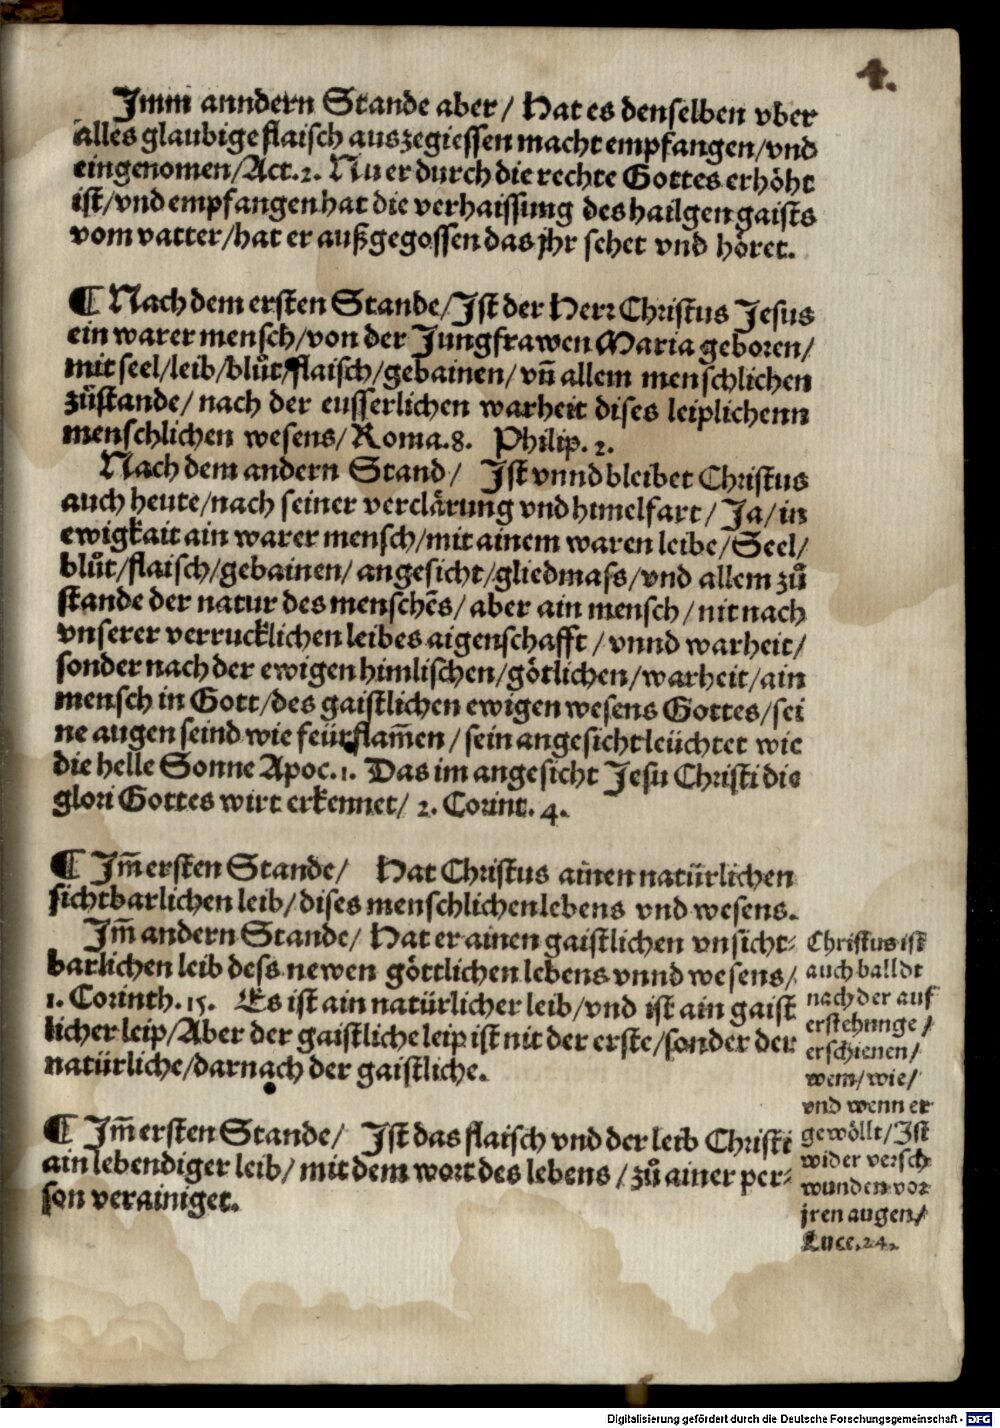 4.
Jmm anndern Stande aber/ Hat es denselben vber
alles glaubige flaisch auszegiessen macht empfangen/vnd
eingenomen/Act.2. Nu er durch die rechte Gottes erhöht
ist/vnd empfangen hat die verhaissung des hailgen gaists
vom vatter/hat er außgegossen das jhr sehet vnd höret.
¶ Nach dem ersten Stande/Jst der Herr Christus Jesus
ein warer mensch/von der Jungfrawen Maria geboren/
mit seel/leib/blůt/flaisch/gebainen/ vñ allem menschlichen
zůstande/ nach der eusserlichen warheit dises leiplichenn
menschlichen wesens/ Roma.8. Philip.2.
Nach dem andern Stand/ Jst vnnd bleibet Christus
auch heute/nach seiner verclärung vnd himelfart/ Ja/in
ewigkait ain warer mensch/mit ainem waren leibe/Seel/
blůt/flaisch/gebainen/ angesicht/gliedmass/vnd allem zů
stande der natur des menschēs/ aber ain mensch/ nit nach
vnserer verrucklichen leibes aigenschafft/ vnnd warheit/
sonder nach der ewigen himlischen/götlichen/warheit/ain
mensch in Gott/des gaistlichen ewigen wesens Gottes/sei
ne augen seind wie feürflam̄en/ sein angesicht leüchtet wie
die helle Sonne Apoc.1. Das im angesicht Jesu Christi die
glori Gottes wirt erkennet/ 2. Corint. 4.
¶ Jm̄ ersten Stande/ Hat Christus ainen natürlichen
sichtbarlichen leib/dises menschlichen lebens vnd wesens.
Jm̄ andern Stande/ Hat er ainen gaistlichen vnsicht⸗
barlichen leib dess newen göttlichen lebens vnnd wesens/
1. Corinth.15. Es ist ain natürlicher leib/vnd ist ain gaist
licher leip/Aber der gaistliche leip ist nit der erste/sonder der
natürliche/darnach der gaistliche.
¶ Jm̄ ersten Stande/ Jst das flaisch vnd der leib Christi
ain lebendiger leib/ mit dem wort des lebens/zů ainer per⸗
son verainiget.
Christus ist
auch balldt
nach der auf
erstehunge/
erschienen/
wem/wie/
vnd wenn er
gewöllt/Jst
wider versch
wunden vor
jren augen/
Luce.24.
Digitalisierung gefördert durch die Deutsche Forschungsgemeinschaft - DFG